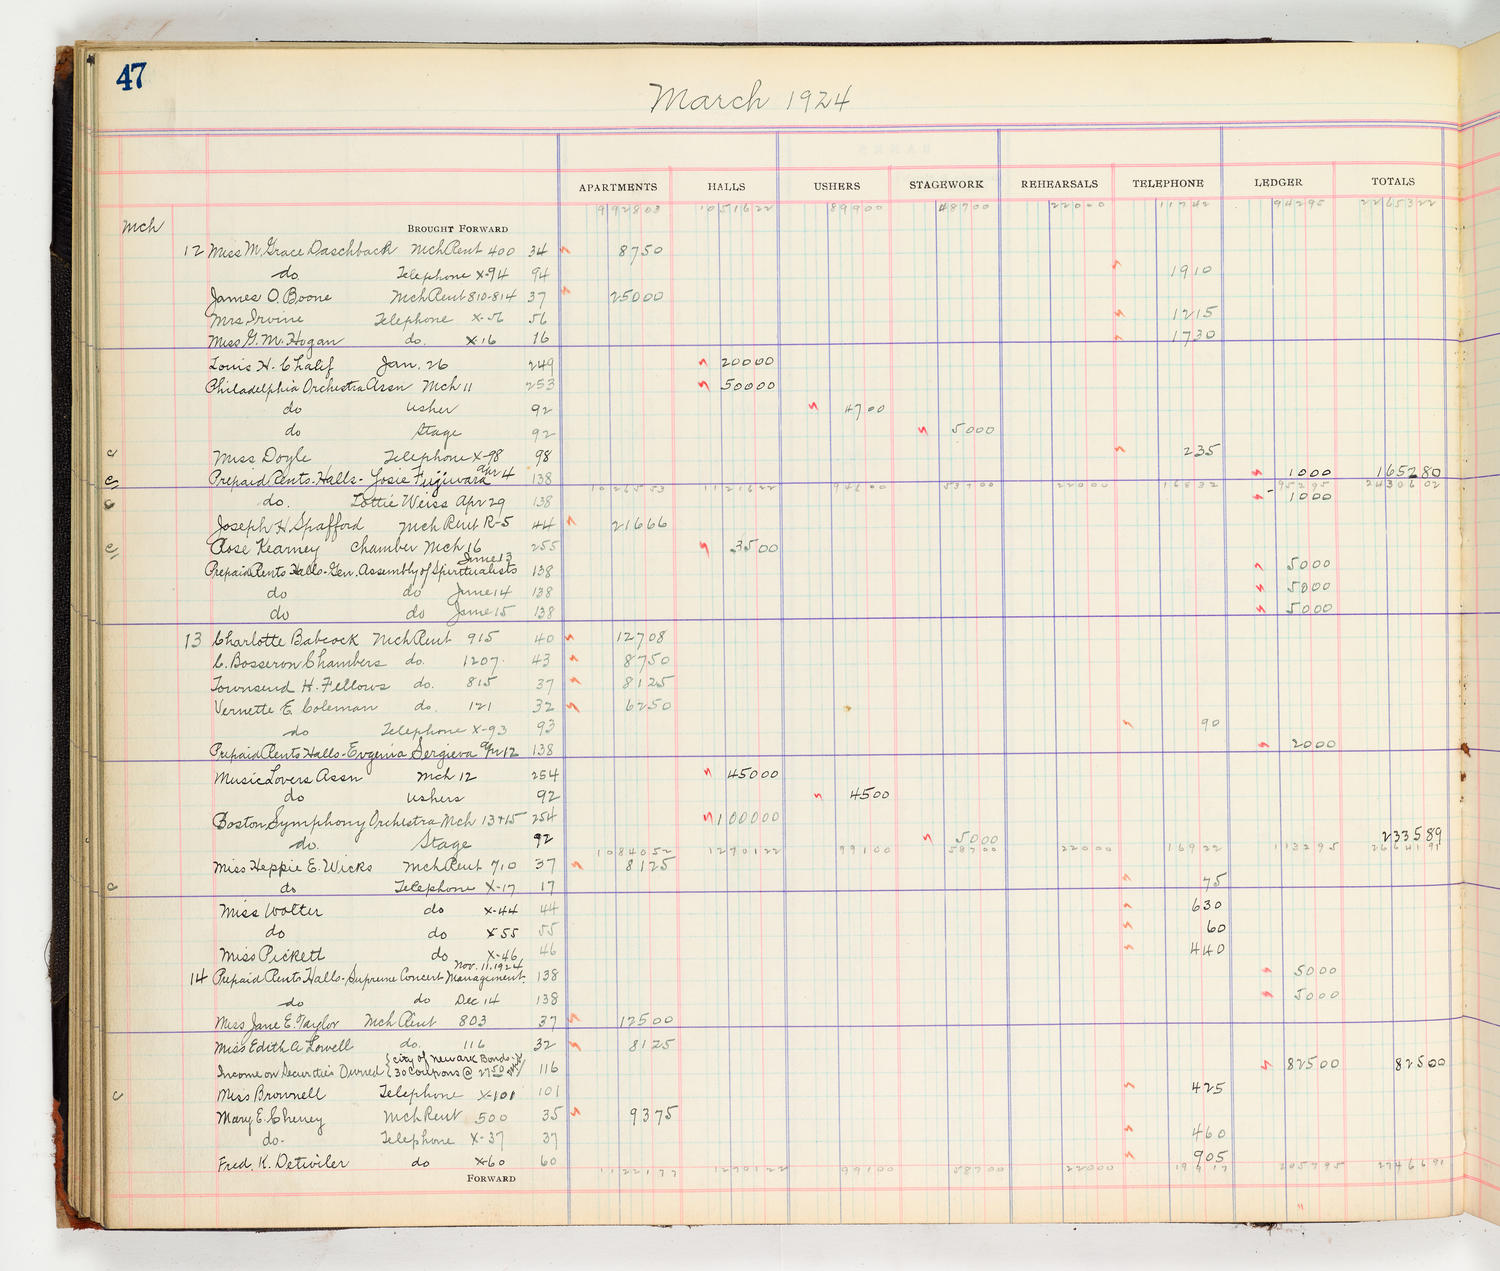 47
March 1924
APARTMENTS HALLS USHERS STAGEWORK REHEARSALS TELEPHONE LEDGER TOTALS
992803 1051622 89900 48700 22000 11742 94295 2265322
Mch BROUGHT FORWARD
12 Miss M. Grace Daschback Mch Rent 400 34 8750
do Telephone X-94 94 1910
James O. Boone Mch Rent 810-814 37 25000
Mrs Irvine Telephone X-56 56 1215
Miss G. M. Hogan do. X-16 16 1730
Louis H. Chalif Jan. 26 249 20000
Philadelphia Orchestra Assn Mch 11 253 50000
do usher 92 4700
do Stage 92 5000
Miss Doyle Telephone X-98 98 235
Prepaid Rents-Halls- Josie Fujiwara Apr 4 138 1000 165280
1026553 121622 94600 53700 22000 16832 95295 2430602
do. Lottie Weiss Apr 29 138 1000
Joseph H. Spafford Mch Rent R-5 44 21666
Rose Kearney Chamber Mch 16 255 3500
Prepaid Rents Halls-Gen. Assembly of Spiritualists June 13 138 5000
do do June 14 138 5000
do do June 15 138 5000
13 Charlotte Babcock Mch Rent 915 40 12708
C. Bosseron Chambers do. 1207. 43 8750
Townsend H. Fellows do. 815 37 8125
Vernette E. Coleman do. 121 32 6250
do Telephone X-93 93 90
Prepaid Rents Halls-Evgenia Sergieva Apr 12 138 2000
Music Lovers Assn Mch 12 254 45000
do ushers 92 4500
Boston Symphony Orchestra Mch 13+15 254 100000
do. Stage 92 5000 233589
1084052 1270122 99100 58700 22000 16922 113295 2664191
Miss Heppie E. Wicks Mch Rent 710 37 8125
do Telephone X-17 17 75
Miss Wolter do X-44 44 630
do do X-55 55 60
Miss Pickett do X-46 46 440
14 Prepaid Rents Halls-Supreme Concert Management. Nov. 11, 1924 138 5000
do do Dec 14 138 5000
Miss Jane E. Taylor Mch Rent 803 37 12500
Miss Edith A. Lowell do. 116 32 8125
Income on Securities Owned {City of Newark Bonds
30 Coupons @ 27.50 116 82500 82500
Miss Brownell Telephone X-101 101 425
Mary E. Cheney Mch Rent 500 35 9375
do. Telephone X-37 37 460
Fred. K. Detwiler do X-60 60 905
FORWARD 1122177 1270122 99100 58700 22000 19917 205795 2746691